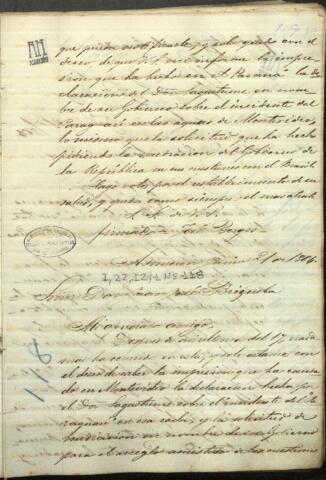 que pueda notificarle, y solo quedo con el
deseo de que V. S. me informe la impre
sion que ha hecho en el Paraná la de
claracion del Dor Sagastume en nom
bre de su Gobierno sobre el incidente del
Paraguay en las aguas de Montevideo,
lo mismo que la solicitud que ha hecho
pidiendo la mediacion del Gobierno de
la República en sus cuestiones con el Brasil
Hago votos por el restablecimiento de su
salud, y quedo como siempre el mas atento
S. S. de V. S.
firmado José Berges
Asuncion
I, 22, 12, 1 Nº
Señor Don José Brizuela
Mi querido amigo:
Despues de mi ultima del 17 nada
mas ha ocurrido en esta, y solo
el deseo de saber la impresion que ha causa
do en Montevideo la declaracion hecha por
el Dor Sagastume sobre el incidente del Pa
raguarí en esa rada, y la solicitud de
mediacion en nombre de su Gobierno
para el arreglo amistoso de las cuestiones